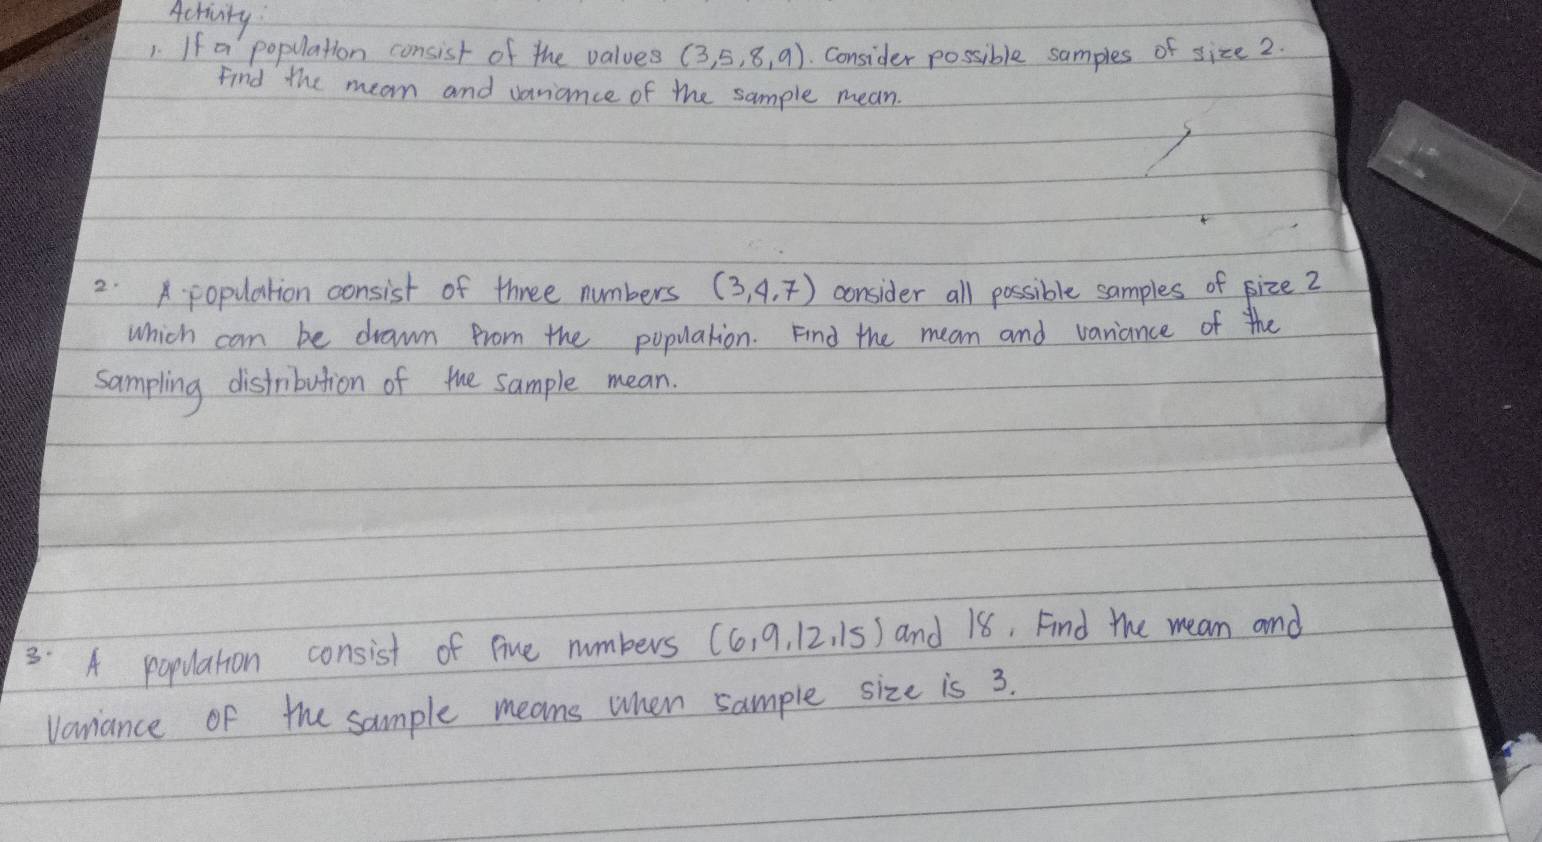 Activity:
1. If a population consist of the values (3,5,8,9). Consider possible samples of size 2.
Find the mean and variance of the sample mean.
2. A population consist of three numbers (3,4,7) consider all possible samples of size 2
which can be drawn from the population. Find the mean and variance of the
sampling distribution of the sample mean.
3. A population consist of five numbers (6,9,12,15) and 18. Find the mean and
Variance of the sample means when sample size is 3.